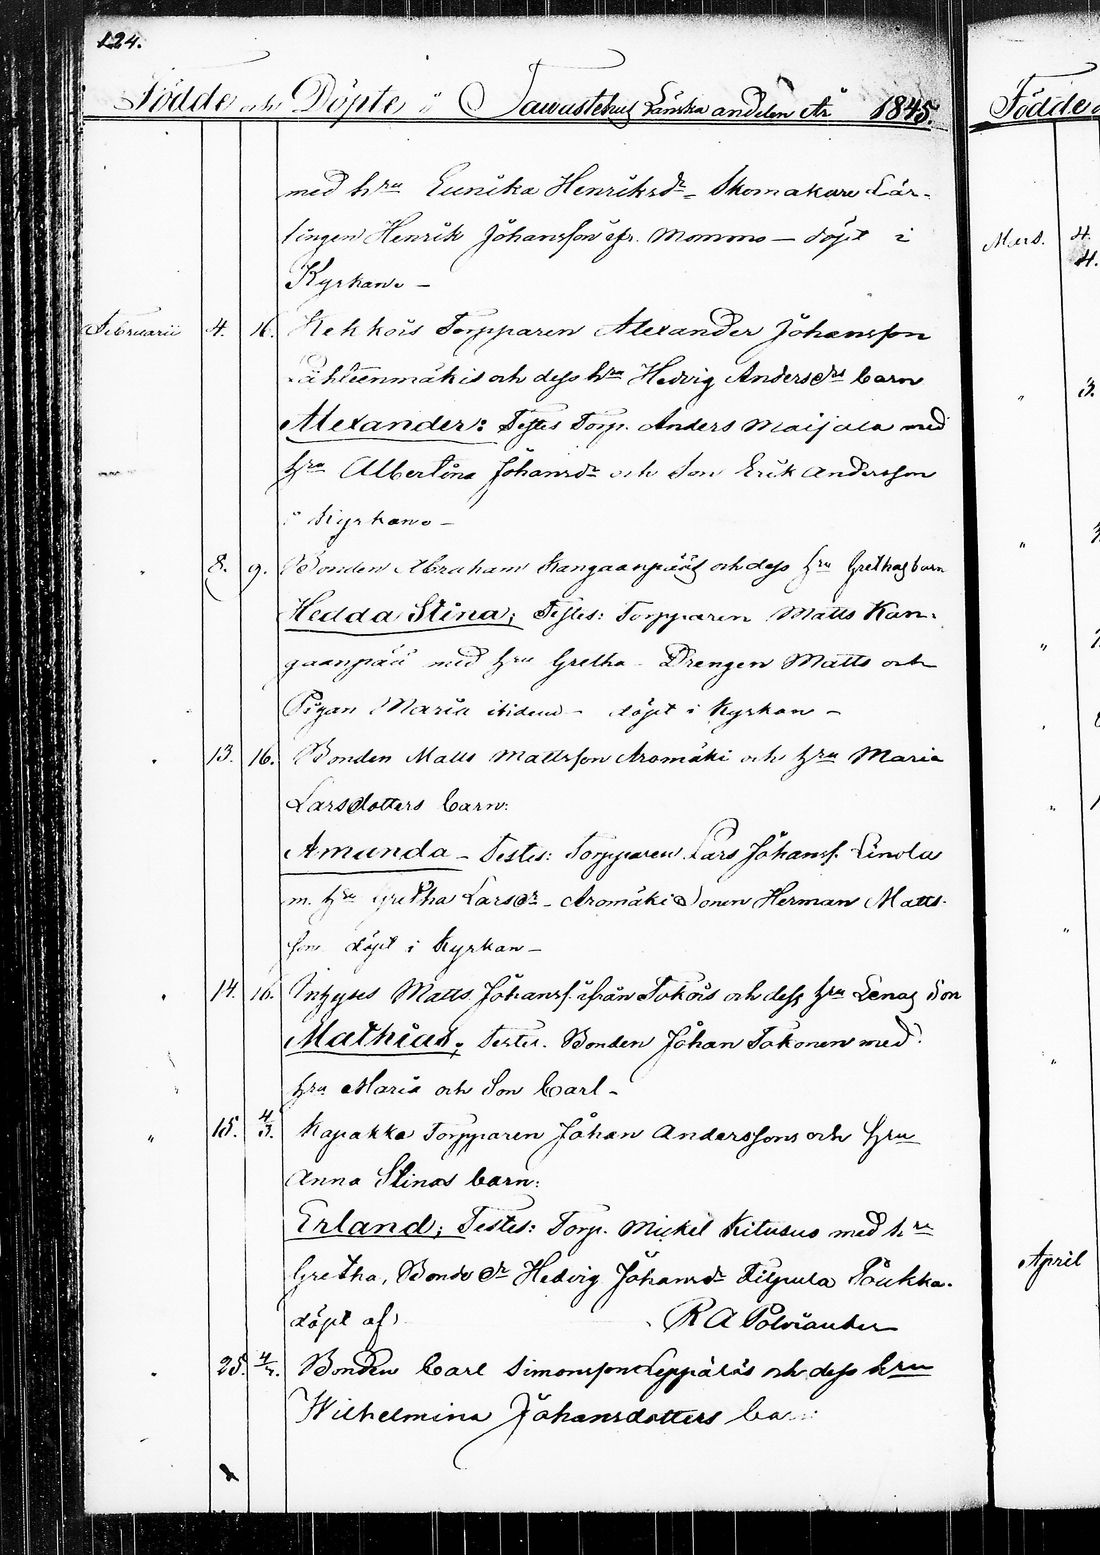 124.
Födde och Döpte i Tawastehus Länska andelen År 1845.
med hru Eunika Henriksdr - Skomakare Lär-
lingen Henrik Johansson ifr. Mommo - döpt i
Kyrkan -
Februarii 4. 16. Kekkois Torpparen Alexander Johansson
Lähteenmäkis och dess hru Hedvig Andersdrs barn
Alexander: Testes Torp. Anders Maijala med
hru Albertina Johansdr och Son Erik Andersson
i Kyrkan -
" 8. 9. Bonden Abraham Kangaanpääs och dess hru Grethas barn
Hedda Stina; Testes: Torpparen Matts Kan-
gaanpää med hru Gretha - Drengen Matts och
Pigan Maria ibidem - döpt i Kyrkan -
" 13. 16. Bonden Matts Mattsson Aromäki och hru Maria
Larsdotters barn:
Amunda - Testes: Torpparen Lars Johanss. Linola
m. hru Gretha Larsdr - Aromäki Sonen Herman Matts-
son döpt i Kyrkan -
" 14. 16. Inhyses Matts Johanss. ifrån Tokois och dess hru Lenas Son
Mathias; Testes. Bonden Johan Tokonen med
hru Maria och Son Carl -
" 15. 4/3. Kapakka Torpparen Johan Anderssons och hru
Anna Stinas barn:
Erland; Testes: Torp. Mickel Kitusuo med hru
Gretha, Bonde dr Hedvig Johansdr Tilpula
döpt af R A Polviander
" 25. Bonden Carl Simonsson Leppäläs och dess hru
Wilhelmina Johansdotters ba
Födde
Mars. 4.
4.
" 3.
"
"
"
"
"
April